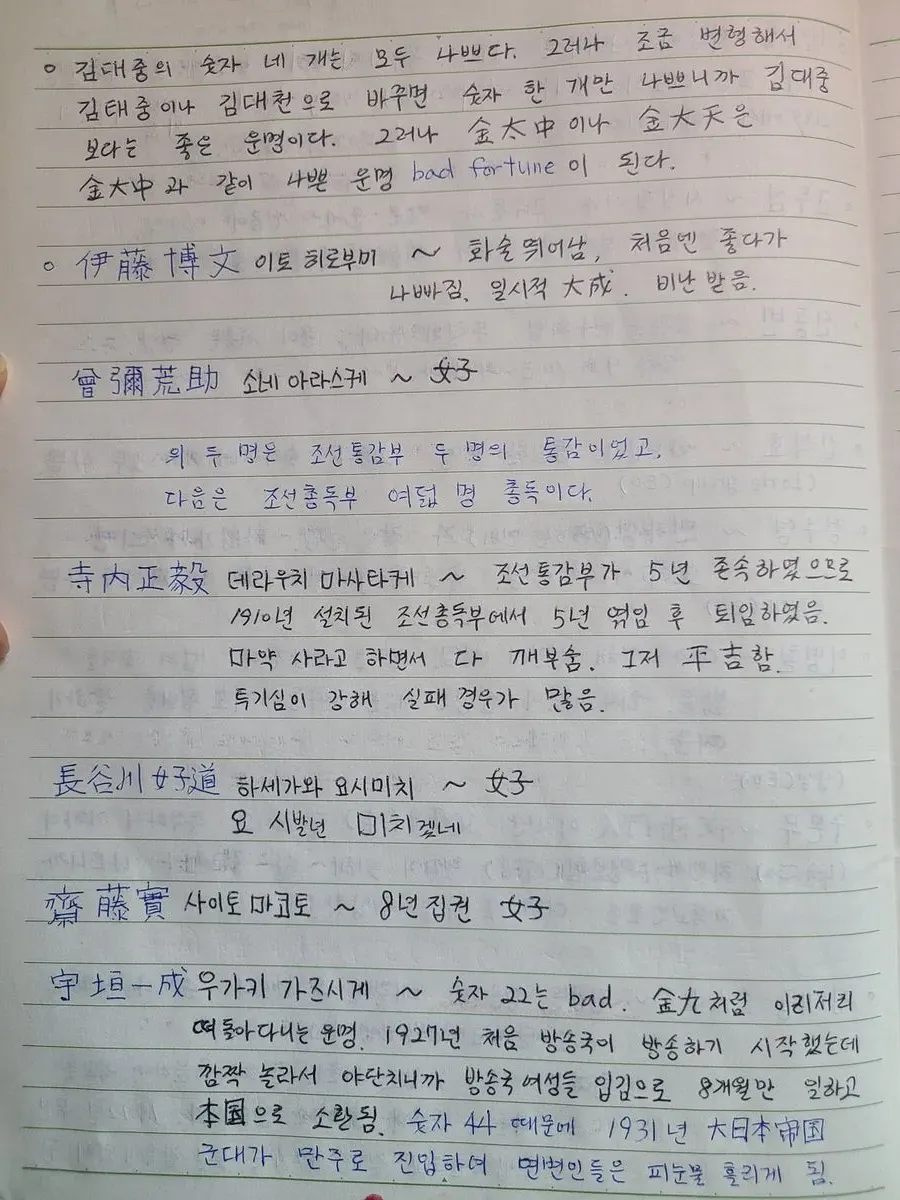 ○ 김대중의 숫자 네 개는 모두 나쁘다. 그러나 조금 변형해서
김태중이나 김대천으로 바꾸면 숫자 한 개만 나쁘니까 김대중
보다는 좋은 운명이다. 그러나 金太中이나 金大天은
金大中과 같이 나쁜 운명 bad fortune이 된다.
○ 伊藤博文 이토 히로부미 ~ 화술 뛰어남, 처음엔 좋다가
나빠짐. 일시적 大成. 비난 받음.
曾彌荒助 소네 아라스케 ~ 女子
위 두 명은 조선통감부 두 명의 통감이었고,
다음은 조선총독부 여덟 명 총독이다.
寺内正毅 데라우치 마사타케 ~ 조선통감부가 5년 존속하였으므로
1910년 설치된 조선총독부에서 5년 엮임 후 퇴임하였음.
마약 사라고 하면서 다 깨부숨. 그저 平吉함.
투기심이 강해 실패 경우가 많음.
長谷川 好道 하세가와 요시미치 ~ 女子
요 시발년 미치겠네
齋藤實 사이토 마코토 ~ 8년 집권 女子
宇垣一成 우가키 가즈시게 ~ 숫자 22는 bad. 金九처럼 이리저리
떠돌아다니는 운명. 1927년 처음 방송국이 방송하기 시작했는데
깜짝 놀라서 야단치니까 방송국 여성들 입김으로 8개월만 일하고
本国으로 소환됨. 숫자 44 때문에 1931년 大日本帝国
군대가 만주로 진입하여 면변인들은 피눈물 흘리게 됨.